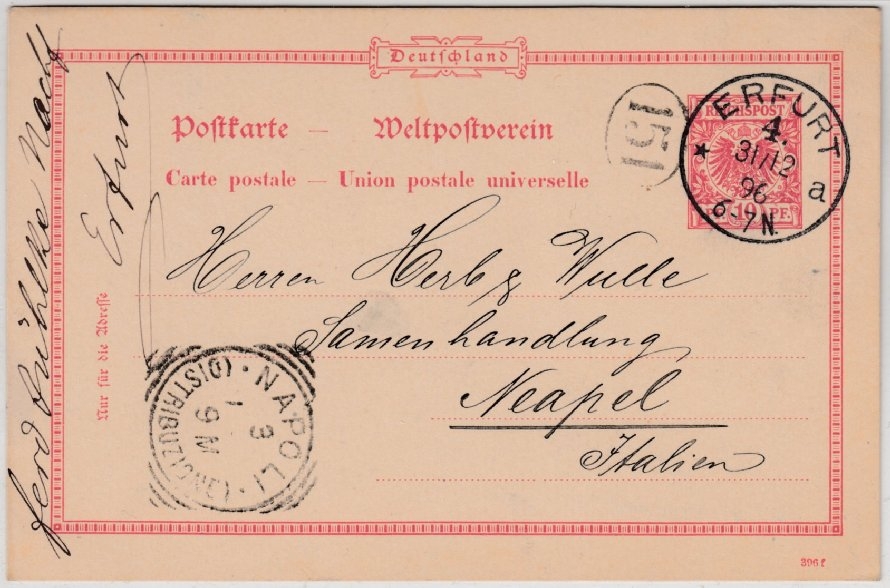 Deutschland
Postkarte — Weltpostverein
Carte postale — Union postale universelle
REICHSPOST
10 PF.
ERFURT
4.
31/12
96
6-7N.
* a
151
Herren Herb & Wulle
Samenhandlung
Neapel
Italien
Nur für die Adresse
Ferd Jühlke Nachf
Erfurt
NAPOLI · (DISTRIBUZIONE) ·
3
1
9 M
396 f